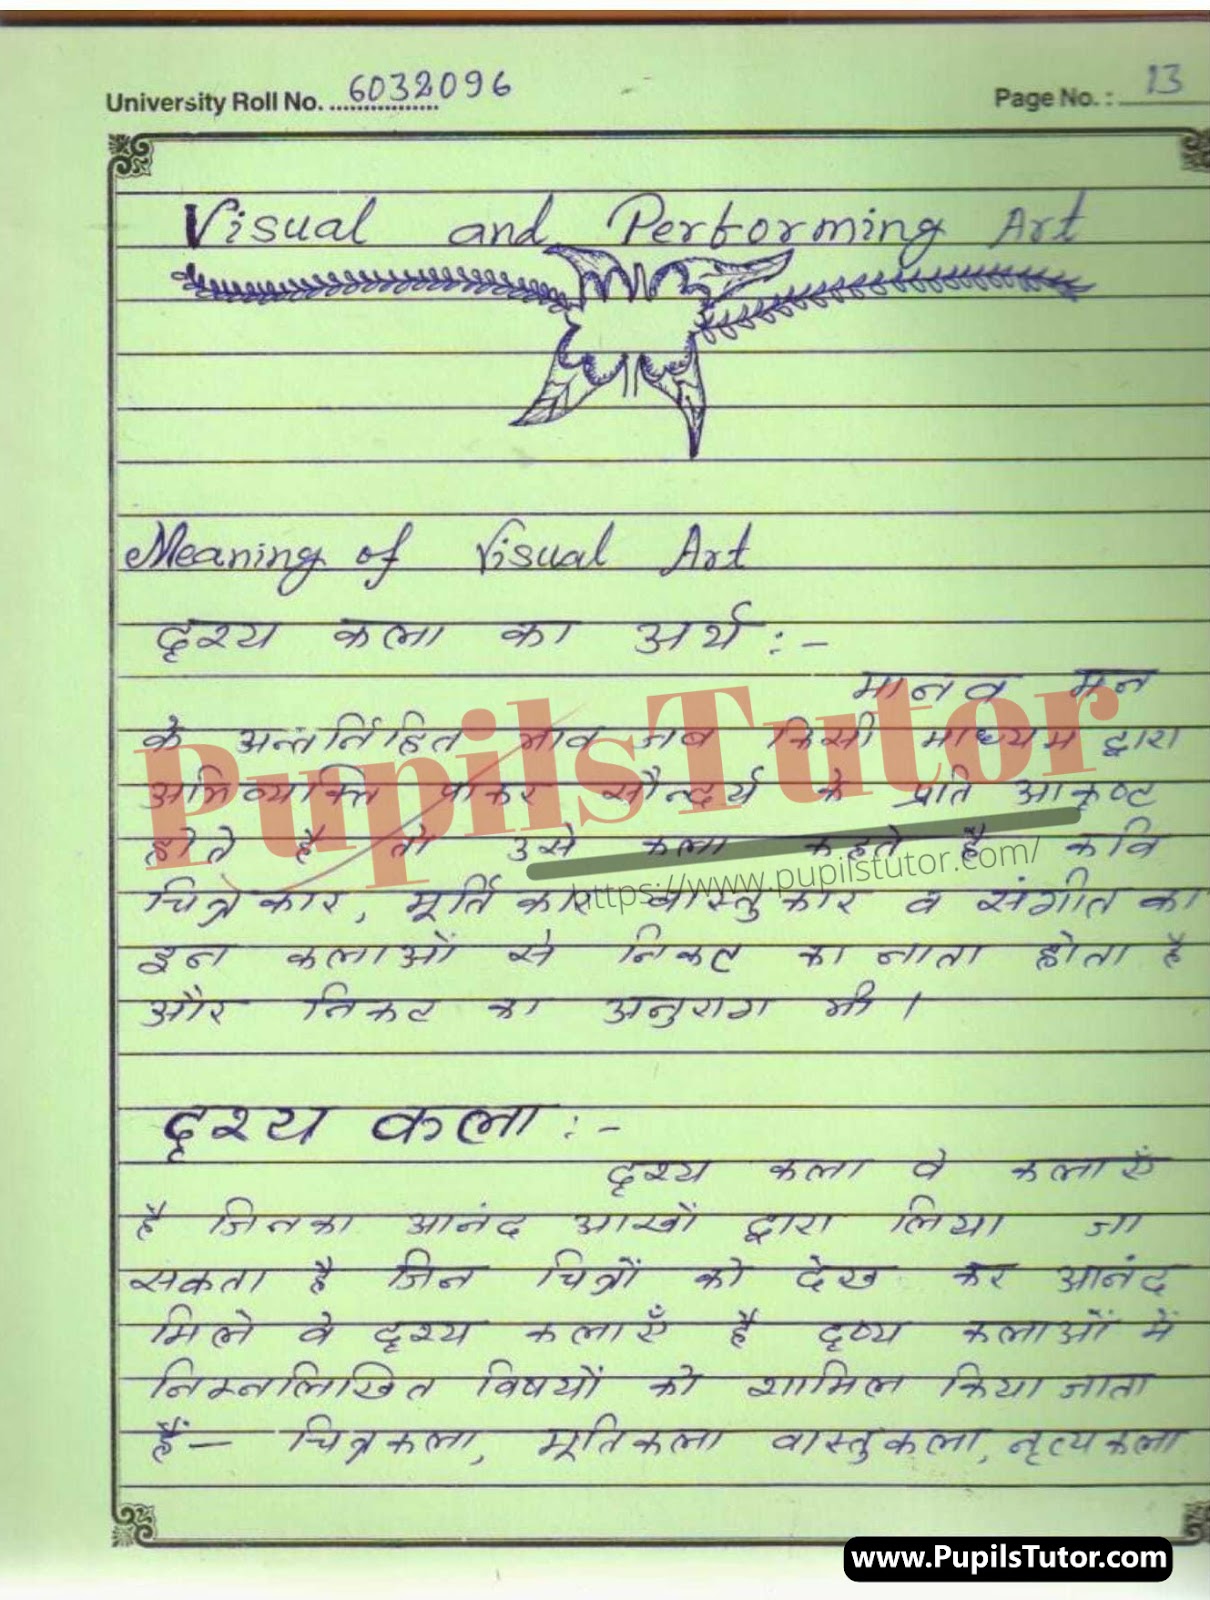 University Roll No. 6032096
Page No. : 13
Visual and Performing Art
Meaning of Visual Art
दृश्य कला का अर्थ :-
मानव मन
के अन्तर्निहित भाव जब किसी माध्यम द्वारा
अभिव्यक्ति पाकर सौन्दर्य के प्रति आकृष्ट
होते है तो उसे कला कहते है कवि
चित्रकार, मूर्तिकार वास्तुकार व संगीत का
इन कलाओं से निकट का नाता होता है
और निकट का अनुराग भी ।
दृश्य कला :-
दृश्य कला वे कलाएँ
है जिनका आनंद आखों द्वारा लिया जा
सकता है जिन चित्रों को देख कर आनंद
मिले वे दृश्य कलाएँ है दृष्य कलाओं में
निम्नलिखित विषयों को शामिल किया जाता
हैं - चित्रकला, मूतिकला वास्तुकला, नृत्यकला
PupilsTutor
https://www.pupilstutor.com/
www.PupilsTutor.com